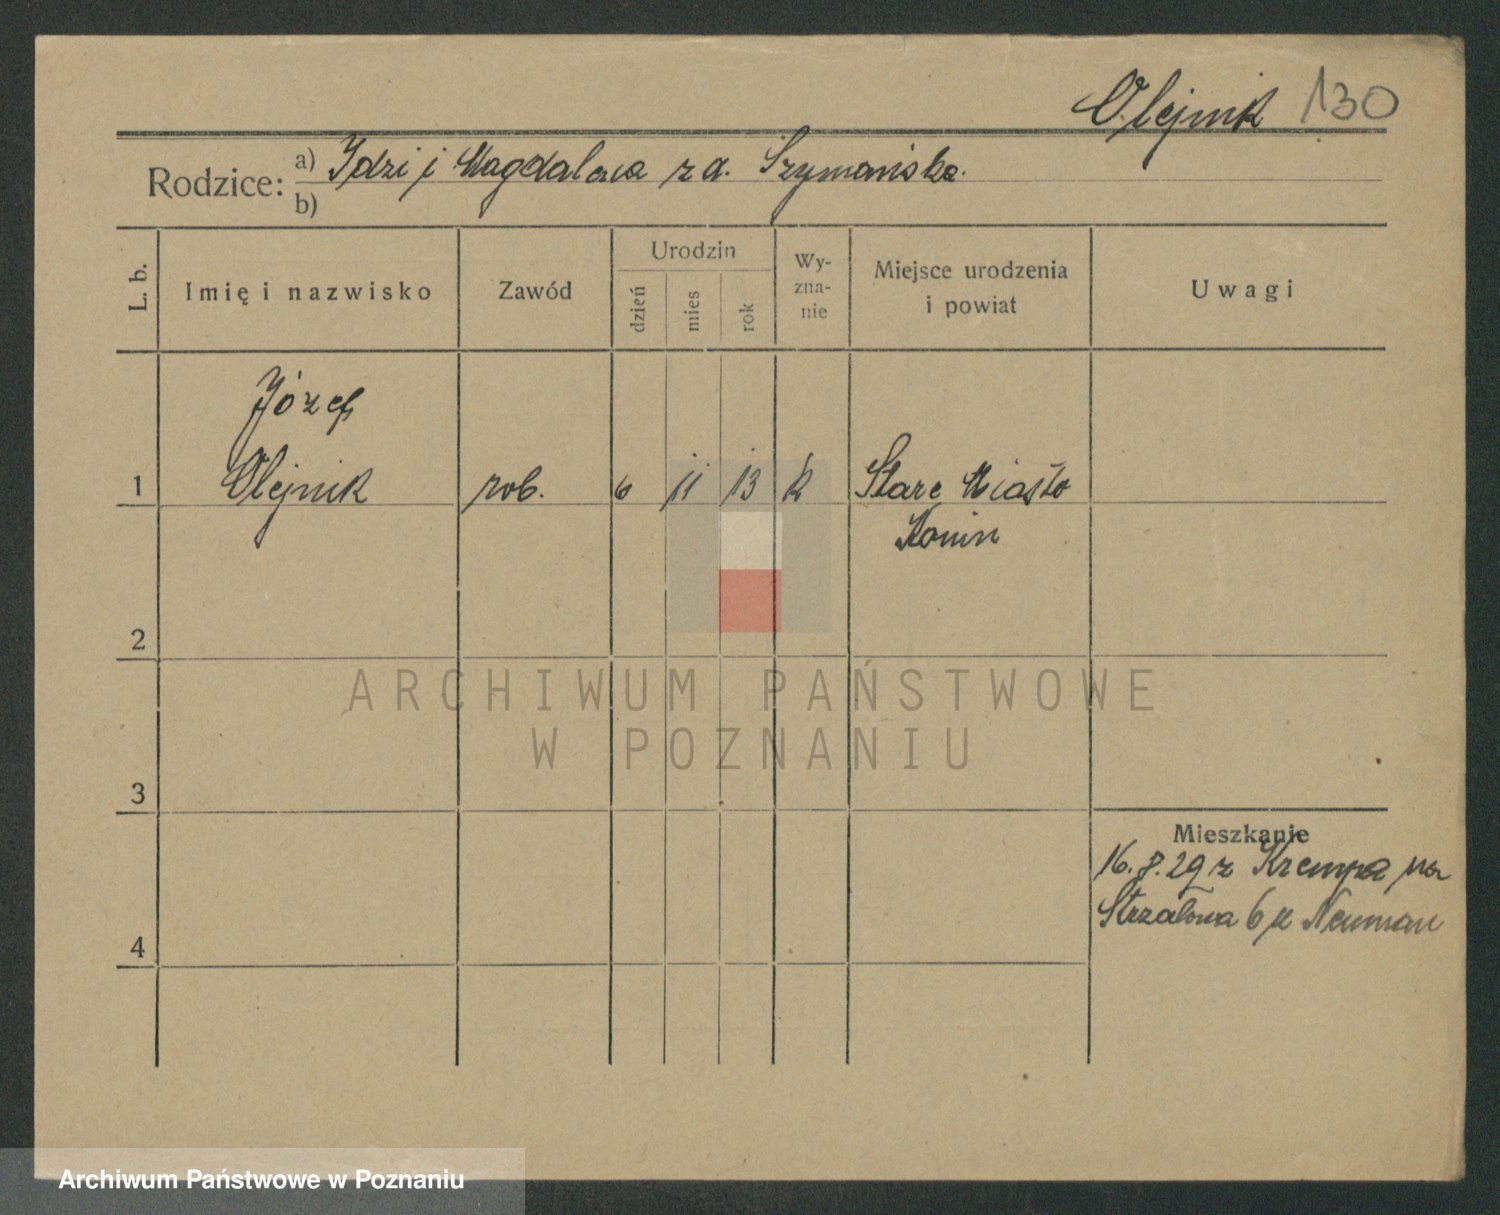 Olejnik 130
Rodzice: a) Idzi i Magdalena z d. Szymańska.
b)
L. b. Imię i nazwisko Zawód Urodzin dzień mies rok Wy-zna-nie Miejsce urodzenia i powiat Uwagi
Józef
1 Olejnik rob. 6 11 13 k Stare Miasto
Konin
2
ARCHIWUM PAŃSTWOWE
W POZNANIU
3
Mieszkanie
16. 8. 29 z Krempa na
Strzałowa 6 u Neuman
4
Archiwum Państwowe w Poznaniu